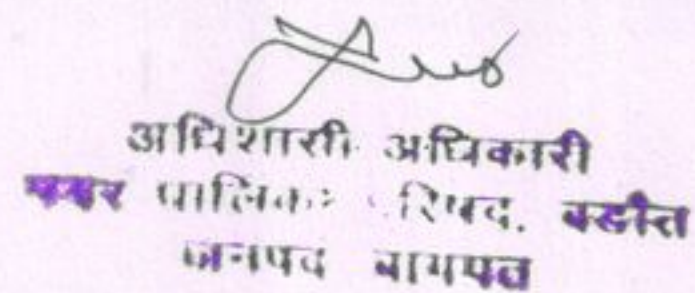 अधिशासी अधिकारी
नगर पालिका परिषद, बडौत
जनपद बागपत